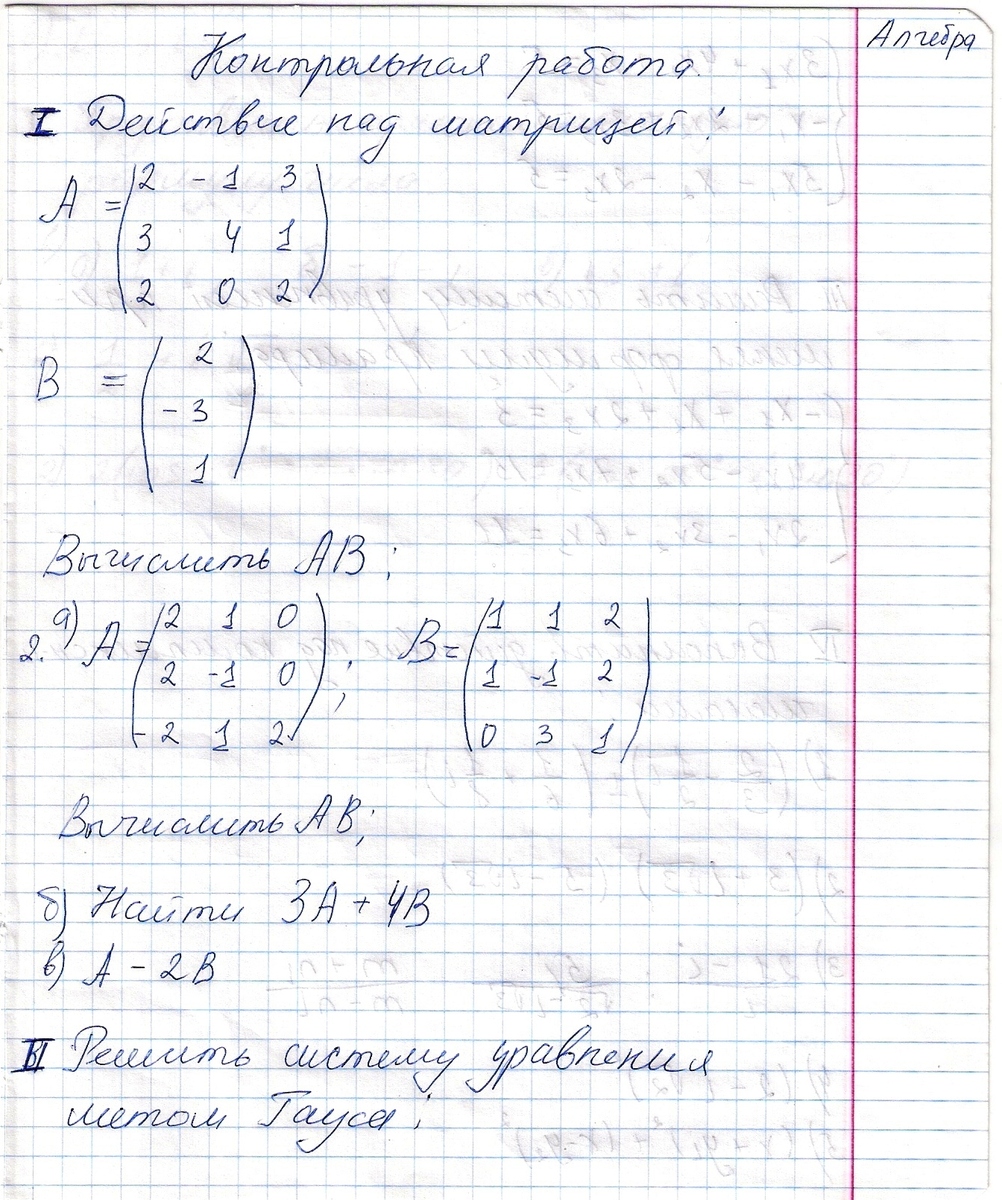 Алгебра
Контрольная работа.
I Действие над матрицей!
A = (2 -1 3
3 4 1
2 0 2)
B = (2
-3
1)
Вычислить AB;
2. а) A = (2 1 0
2 -1 0
-2 1 2); B = (1 1 2
1 -1 2
0 3 1)
Вычислить AB;
б) Найти 3A + 4B
в) A - 2B
II Решить систему уравнения
метом Гауса;